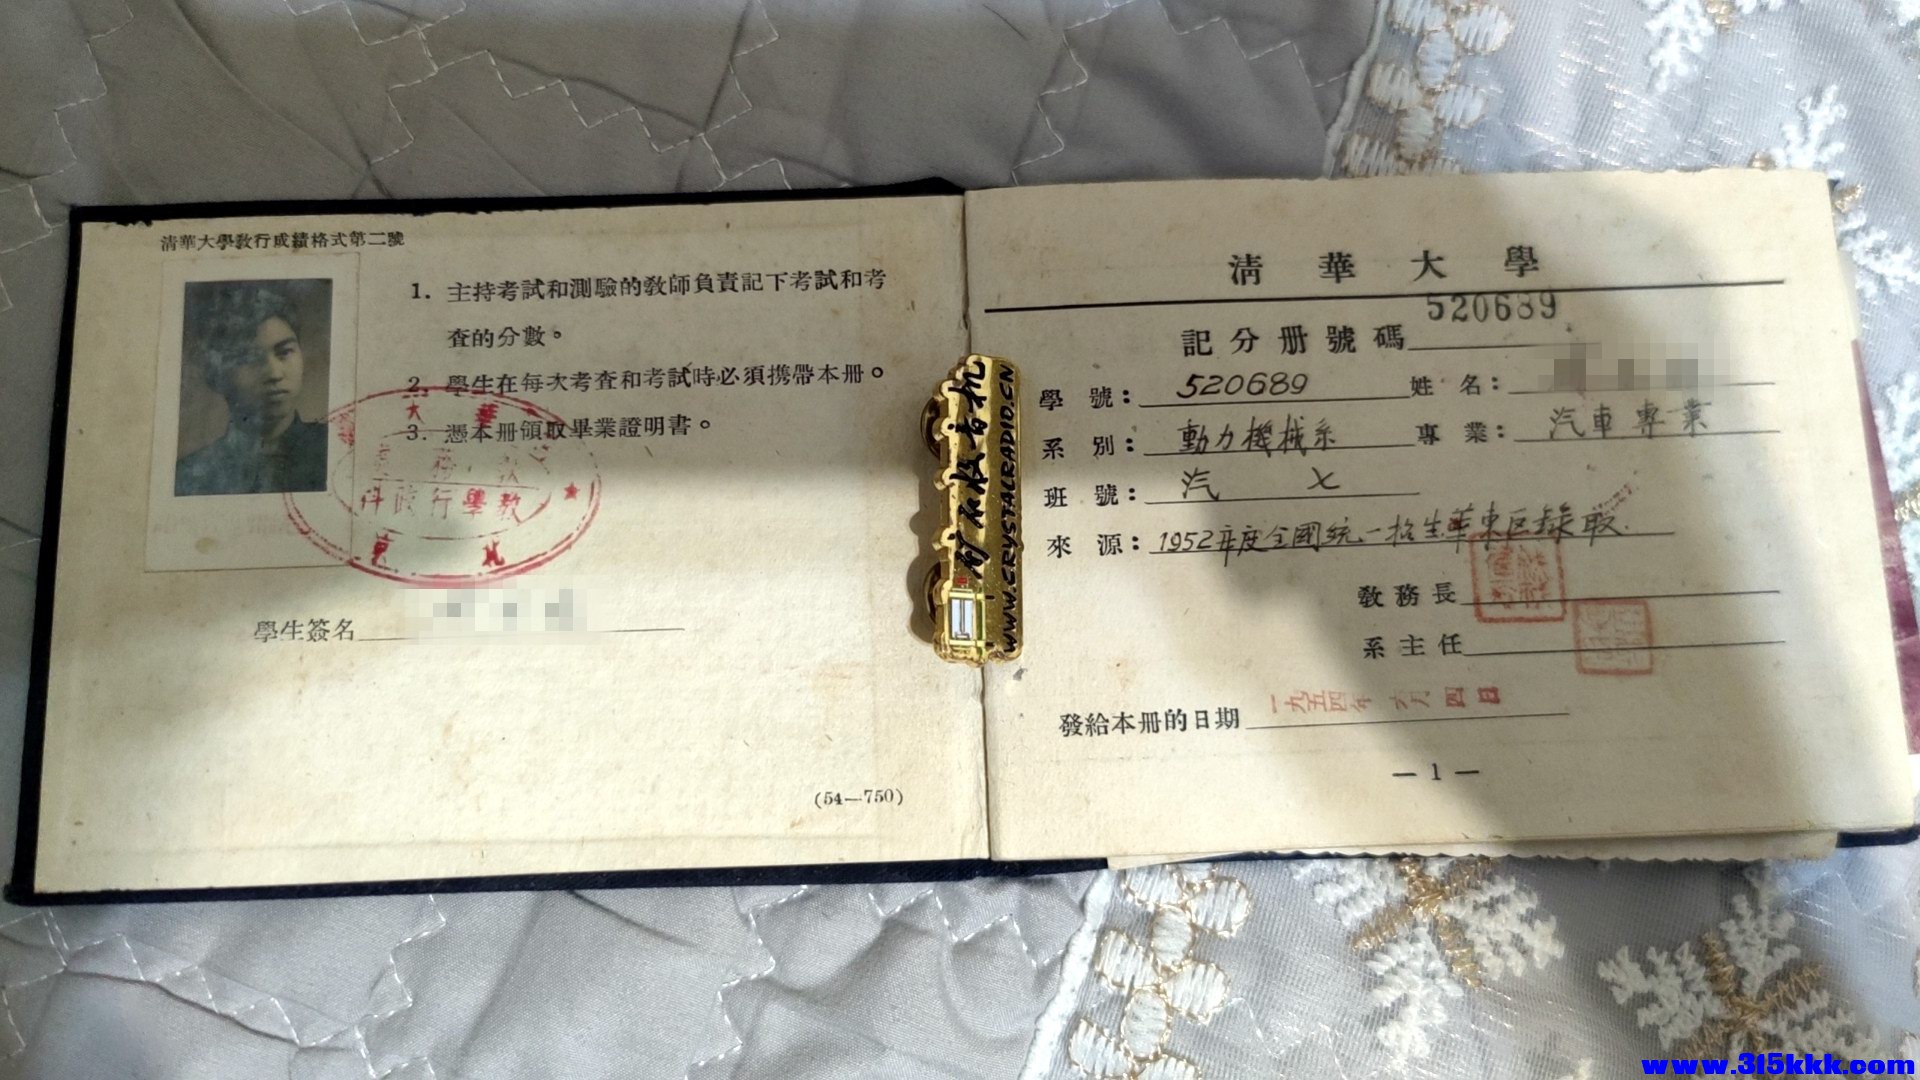 清華大學教行成績格式第二號
1. 主持考試和測驗的教師負責記下考試和考
查的分數。
2. 學生在每次考查和考試時必須携帶本册。
3. 憑本册領取畢業證明書。
大 華
教學行政科
北 京
學生簽名
(54—750)
矿石收音机
WWW.CRYSTALRADIO.CN
清華大學
記分册號碼 520689
學號: 520689 姓名:
系別: 動力機械系 專業: 汽車專業
班號: 汽 七
來源: 1952年度全國統一招生華東區錄取.
教務長
系主任
發給本册的日期 一九五四年 六月 四日
— 1 —
www.315kkk.com